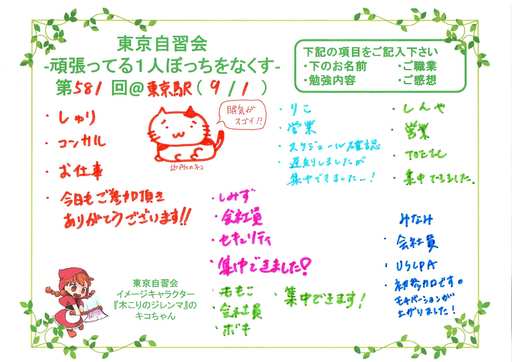 東京自習会
-頑張ってる1人ぼっちをなくす-
第581回@東京駅(9/1)
下記の項目をご記入下さい
・下のお名前 ・ご職業
・勉強内容 ・ご感想
・しゅり
・コンサル
・お仕事
・今日もご参加頂き
ありがとうございます!!
・りこ
・営業
・スケジュール確認
・遅刻しましたが
集中できましたー!
・しんや
・営業
・TOEIC
・集中できました。
・しみず
・会社員
・セキュリティ
・集中できました♡
・ももこ
・会社員
・ボキ
・集中できます!
みなみ
・会社員
・USCPA
・初参加です。
モチベーションが
上がりました!
東京自習会
イメージキャラクター
『木こりのジレンマ』の
キコちゃん